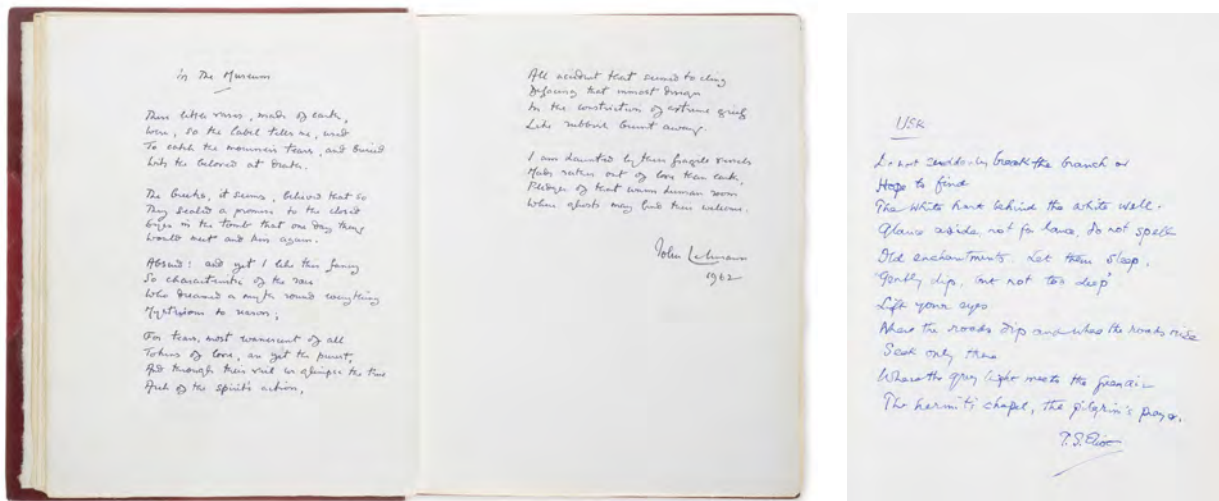 in The Museum
These little vases, made of earth,
Were, so the label tells me, used
To catch the mourners tears, and buried
With the beloved at death.
The Greeks, it seems, believed that so
They sealed a promise to the closed
Eyes in the tomb that one day they
Would meet and kiss again.
Absurd: and yet I like this fancy
So characteristic of the race
Who dreamed a myth round everything
Mysterious to reason;
For tears, most evanescent of all
Tokens of love, are yet the purest,
And through their veil we glimpse the true
Arch of the spirit's action,
All accident that seemed to cling
Defacing that inmost design
In the constriction of extreme grief
Like rubbish burnt away.
I am haunted by these fragile vessels
Made rather out of love than earth,
Pledges of that warm human room
Where ghosts may find their welcome.
John Lehmann
1962
Usk
Do not suddenly break the branch or
Hope to find
The white hart behind the white well.
Glance aside, not for lance, do not spell
Old enchantments. Let them sleep.
'Gently dip, but not too deep'
Lift your eyes
Where the roads dip and where the roads rise
Seek only there
Where the grey light meets the green air
The hermit's chapel, the pilgrim's prayer.
T. S. Eliot